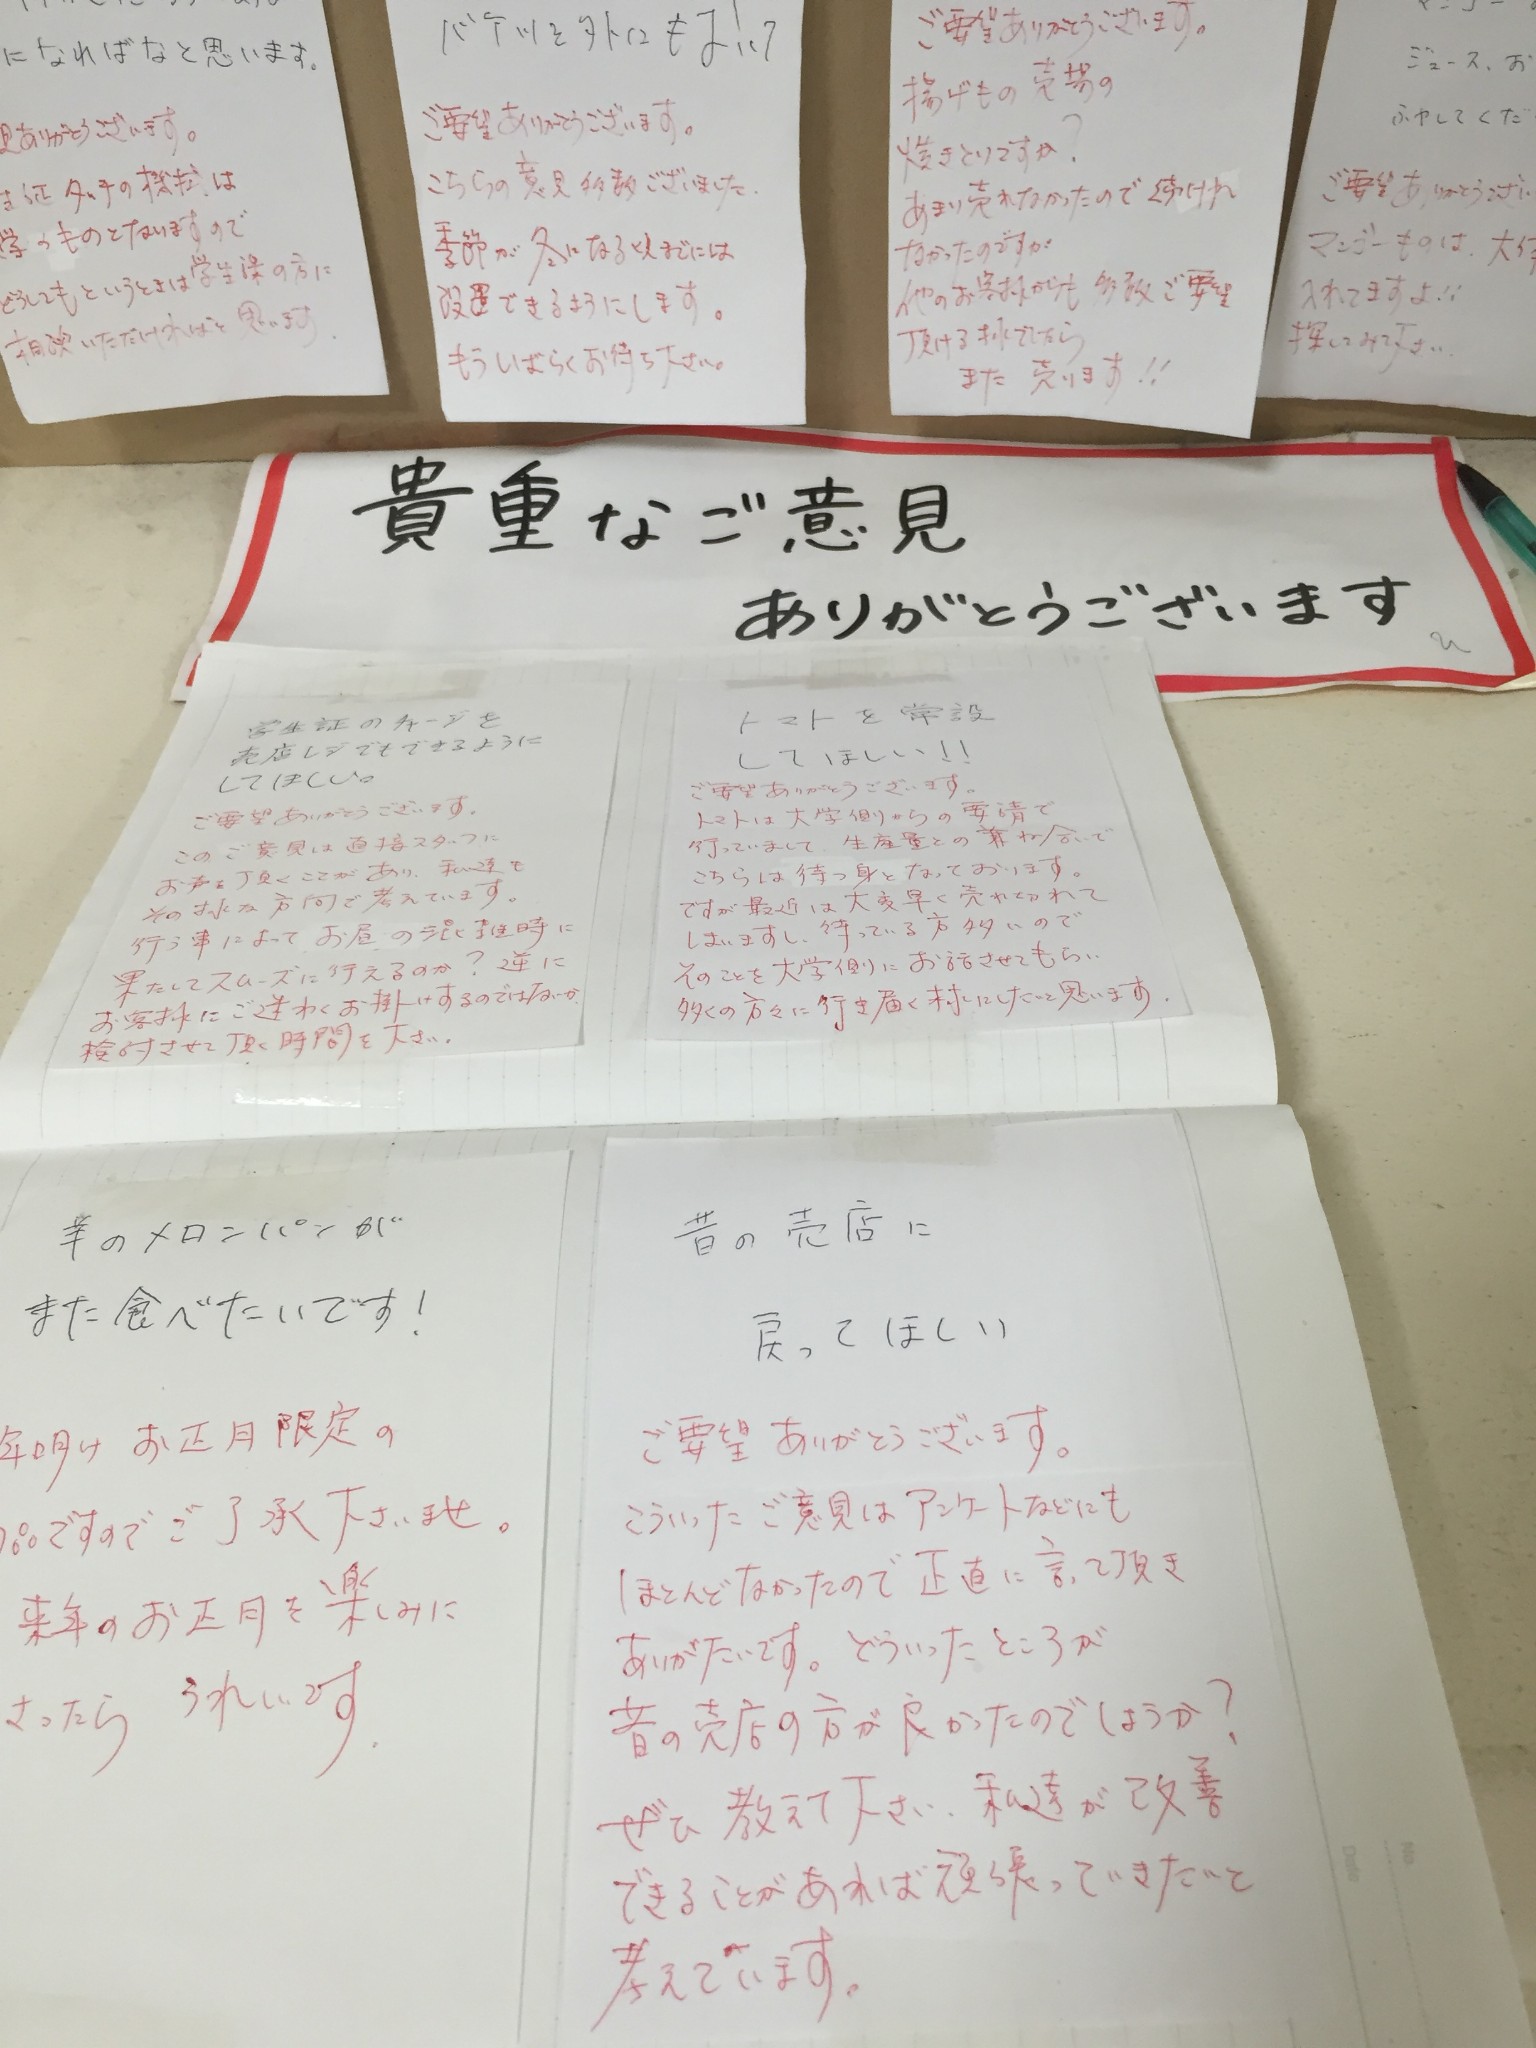 になればなと思います。
見ありがとうございます。
タッチの機械は
ものとなりますので
どうしてもというときは学生課の方に
相談いただければと思います
ご要望ありがとうございます。
こちらの意見多数ございました.
季節が冬になるときまでには
設置できるようにします。
もうしばらくお待ち下さい。
ご要望ありがとうございます。
揚げもの売場の
焼きとりですか?
あまり売れなかったので続けれ
なかったのですが
他のお客様からも多数ご要望
頂ける様でしたら
また売ります!!
ジュース、お
ふやしてくだ
ご要望ありがとうござい
マンゴーものは、大
入れてますよ!!
探してみて下さい.
貴重なご意見
ありがとうございます
学生証のチャージを
売店レジでもできるように
してほしい。
ご要望ありがとうございます.
このご意見は直接スタッフに
お声を頂くことがあり、私達も
その様な方向で考えています。
行う事によってお昼の混雑時に
果たしてスムーズに行えるのか?逆に
お客様にご迷わくお掛けするのではないか
検討させて頂く時間を下さい.
トマトを常設
してほしい!!
ご要望ありがとうございます。
トマトは大学側からの要請で
行っていまして、生産量との兼ね合いで
こちらは待つ身となっております。
ですが最近は大変早く売れ切れて
しまいますし、待っている方多いので
そのことを大学側にお話させてもらい
多くの方々に行き届く様にしたいと思います.
羊のメロンパンが
また食べたいです!
年明けお正月限定の
品ですのでご了承下さいませ。
来年のお正月を楽しみに
さったらうれしいです.
昔の売店に
戻ってほしい
ご要望ありがとうございます。
こういったご意見はアンケートなどにも
ほとんどなかったので正直に言って頂き
ありがたいです。どういったところが
昔の売店の方が良かったのでしょうか?
ぜひ教えて下さい.私達が改善
できることがあれば頑張っていきたいと
考えています。
No.
Date